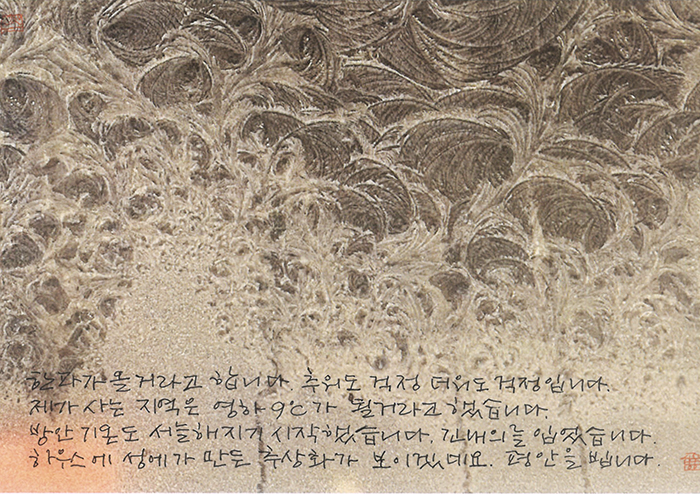 한파가 올거라고 합니다. 추위도 걱정 더위도 걱정입니다.
제가 사는 지역은 영하 9℃가 될거라고 했습니다.
방안 기온도 서늘해지기 시작했습니다. 긴내의를 입었습니다.
하우스에 성에가 만든 추상화가 보이겠네요. 평안을 빕니다.